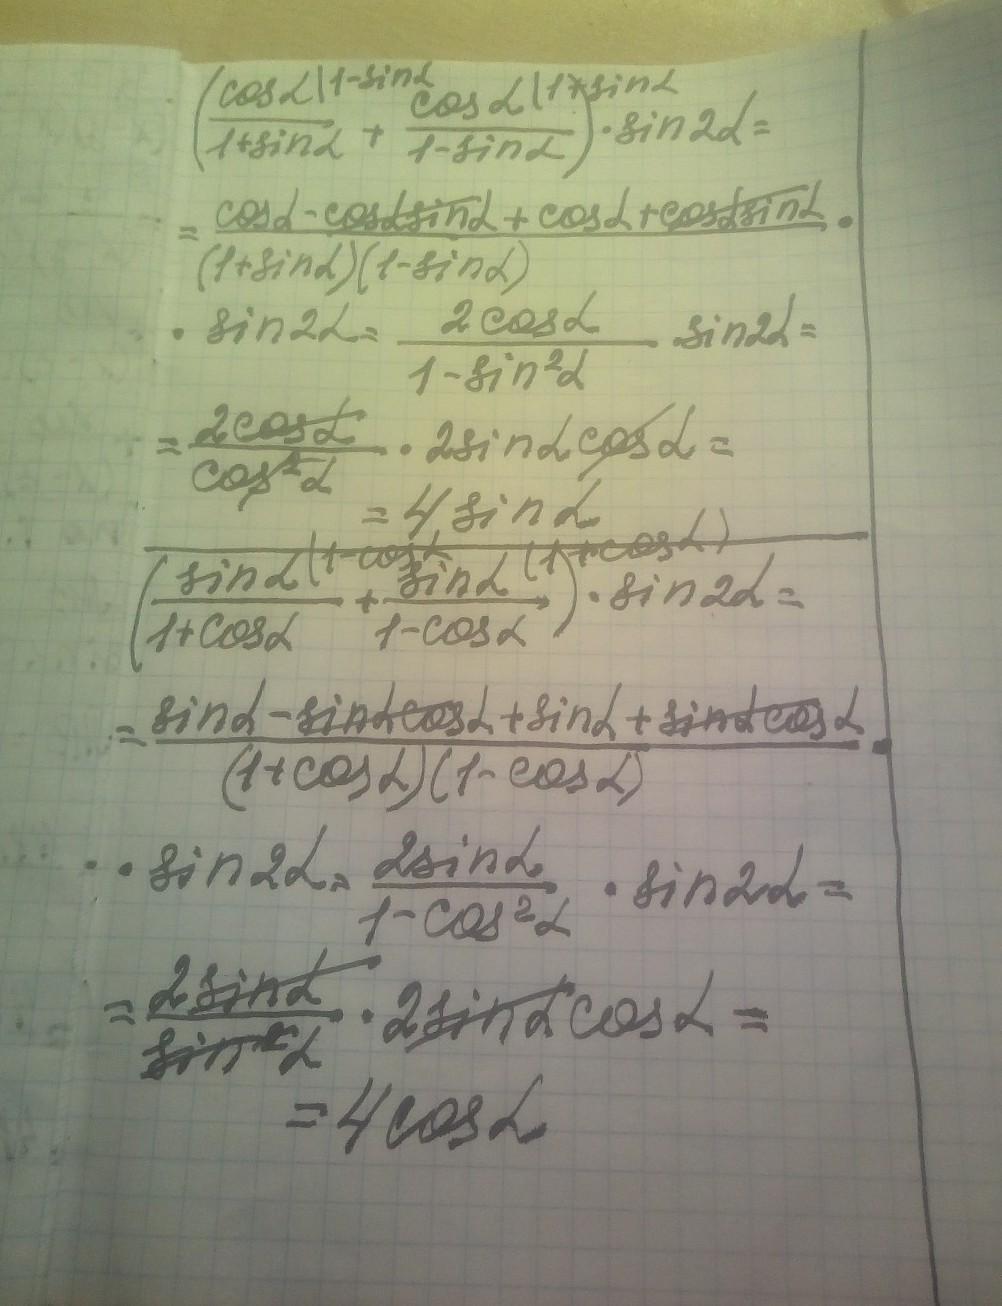 (cosα|1-sinα / 1+sinα + cosα|1+sinα / 1-sinα) · sin2α =
= cosα - cosαsinα + cosα + cosαsinα / (1+sinα)(1-sinα) ·
· sin2α = 2cosα / 1-sin²α · sin2α =
= 2cosα / cos²α · 2sinαcosα =
= 4sinα
(sinα|1-cosα / 1+cosα + sinα(1+cosα) / 1-cosα) · sin2α =
= sinα - sinαcosα + sinα + sinαcosα / (1+cosα)(1-cosα) ·
· sin2α = 2sinα / 1-cos²α · sin2α =
= 2sinα / sin²α · 2sinαcosα =
= 4cosα